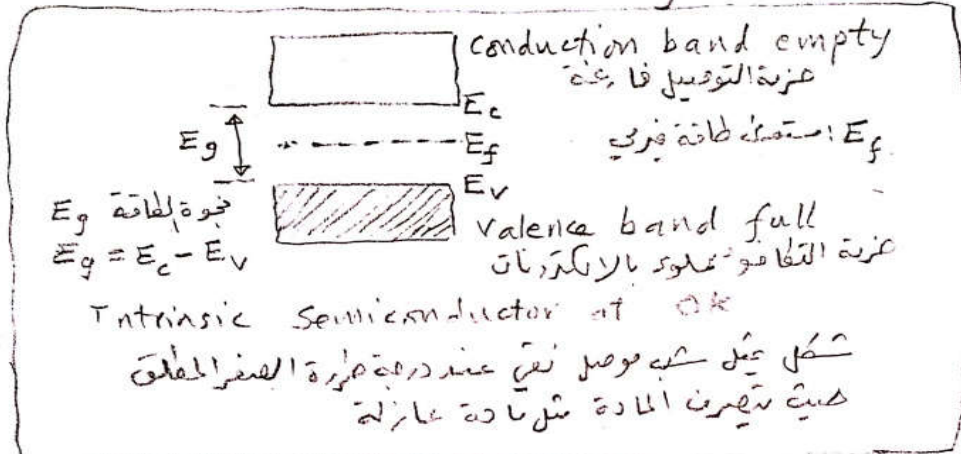 conduction band empty
حزمة التوصيل فارغة
Ec
Eg
Ef
Ef : مستوى طاقة فيرمي
Ev
فجوة الطاقة Eg
Eg = Ec - Ev
valence band full
حزمة التكافؤ مملوء بالالكترونات
Intrinsic Semiconductor at 0k
شكل يمثل شبه موصل نقي عند درجة حرارة الصفر المطلق
حيث تتصرف المادة مثل مادة عازلة